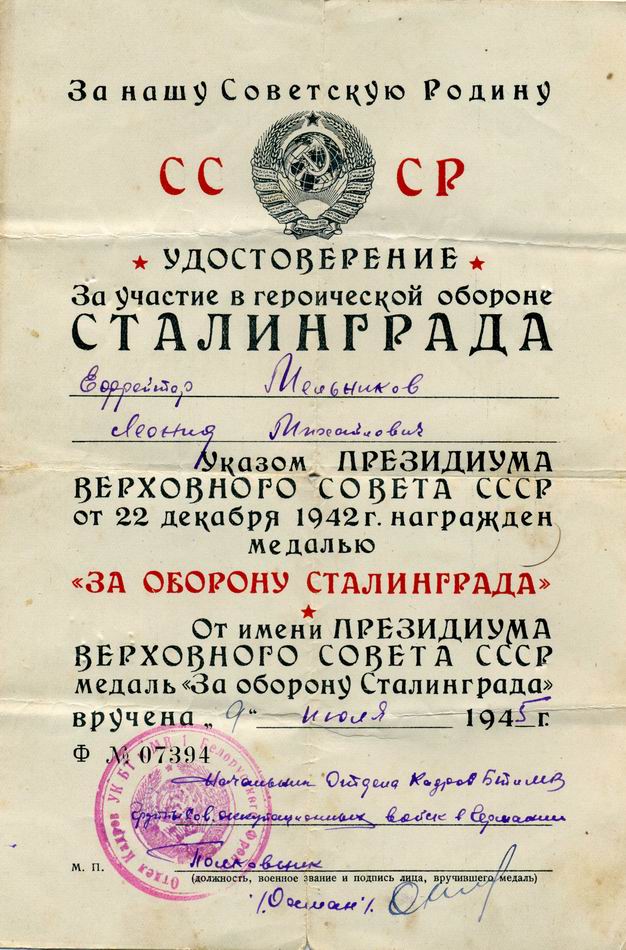 За нашу Советскую Родину
СССР
УДОСТОВЕРЕНИЕ
За участие в героической обороне
СТАЛИНГРАДА
Ефрейтор Мельников
Леонид Михайлович
Указом ПРЕЗИДИУМА
ВЕРХОВНОГО СОВЕТА СССР
от 22 декабря 1942 г. награжден
медалью
«ЗА ОБОРОНУ СТАЛИНГРАДА»
От имени ПРЕЗИДИУМА
ВЕРХОВНОГО СОВЕТА СССР
медаль «За оборону Сталинграда»
вручена „9“ июля 1945 г.
Ф № 07394
Начальник Отдела Кадров БТ и МВ
Группы Сов. оккупационных войск в Германии
Полковник
м. п.
(должность, военное звание и подпись лица, вручившего медаль)
Отдел Кадров УК БТ и МВ 1 Белорусск